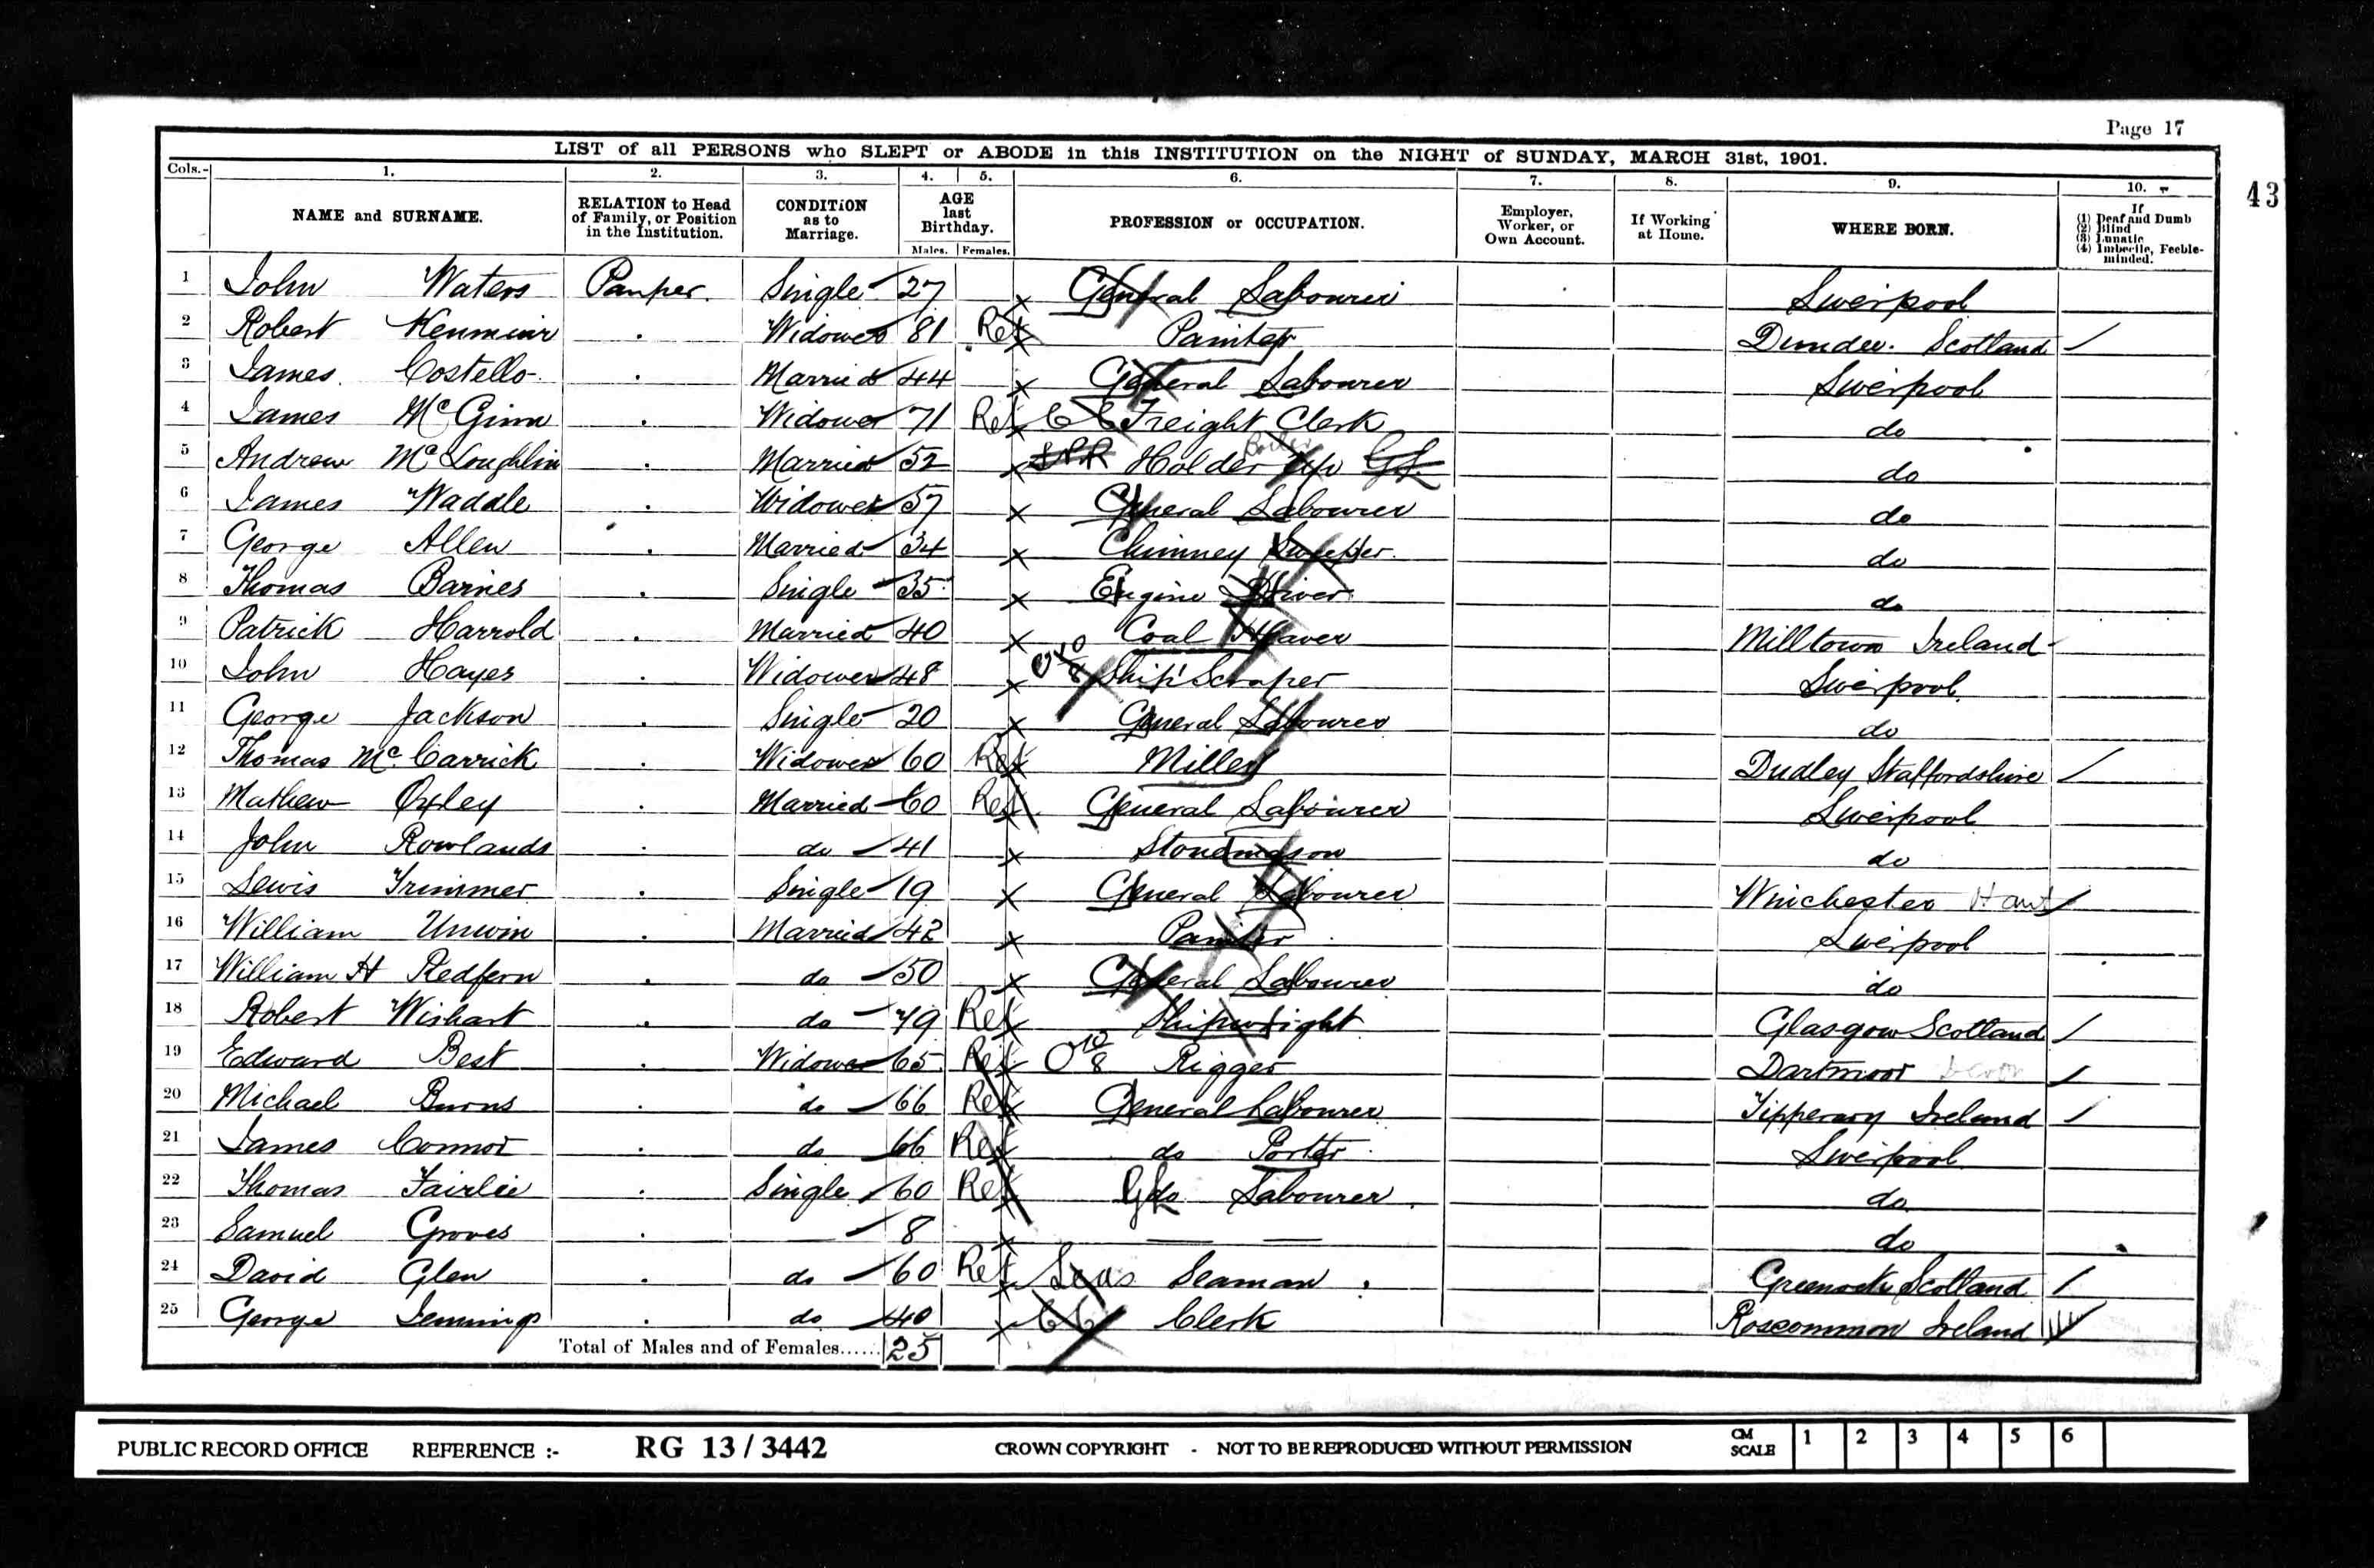 Page 17
LIST of all PERSONS who SLEPT or ABODE in this INSTITUTION on the NIGHT of SUNDAY, MARCH 31st, 1901.
43
Cols.- 1. 2. 3. 4. 5. 6. 7. 8. 9. 10.
NAME and SURNAME. RELATION to Head of Family, or Position in the Institution. CONDITION as to Marriage. AGE last Birthday. Males. Females. PROFESSION or OCCUPATION. Employer, Worker, or Own Account. If Working at Home. WHERE BORN. If (1) Deaf and Dumb (2) Blind (3) Lunatic (4) Imbecile, Feeble-minded.
1 John Waters Pauper. Single 27 General Labourer Liverpool
2 Robert Kenmuir . Widower 81 Ret Painter Dundee. Scotland
3 James Costello . Married 44 General Labourer Liverpool
4 James McGinn . Widower 71 Ret CC Freight Clerk do
5 Andrew McLoughlin . Married 52 Holder Boiler up G.L. do
6 James Waddle . Widower 57 General Labourer do
7 George Allen . Married 34 Chimney Sweeper do
8 Thomas Barnes . Single 35 Engine Driver do
9 Patrick Harrold . Married 40 Coal Heaver Milltown Ireland
10 John Hayes . Widower 48 Ship Scraper Liverpool
11 George Jackson . Single 20 General Labourer do
12 Thomas Mc.Carrick . Widower 60 Ret Miller Dudley Staffordshire
13 Mathew Oxley . Married 60 Ret General Labourer Liverpool
14 John Rowlands . do 41 Stonemason do
15 Lewis Trimmer . Single 19 General Labourer Winchester Hants
16 William Unwin . Married 42 Painter Liverpool
17 William H Redfern . do 50 General Labourer do
18 Robert Wishart . do 79 Ret Shipwright Glasgow Scotland
19 Edward Best . Widower 65 Ret Rigger Dartmoor Devon
20 Michael Burns . do 66 Ret General Labourer Tipperary Ireland
21 James Connor . do 66 Ret do Porter Liverpool
22 Thomas Fairlie . Single 60 Ret do Labourer do
23 Samuel Groves . — 8 — — do
24 David Glen . do 60 Ret Seaman Greenock Scotland
25 George Jennings . do 40 CC Clerk Roscommon Ireland
Total of Males and of Females...... 25
PUBLIC RECORD OFFICE REFERENCE :- RG 13 / 3442 CROWN COPYRIGHT - NOT TO BE REPRODUCED WITHOUT PERMISSION CM SCALE 1 2 3 4 5 6